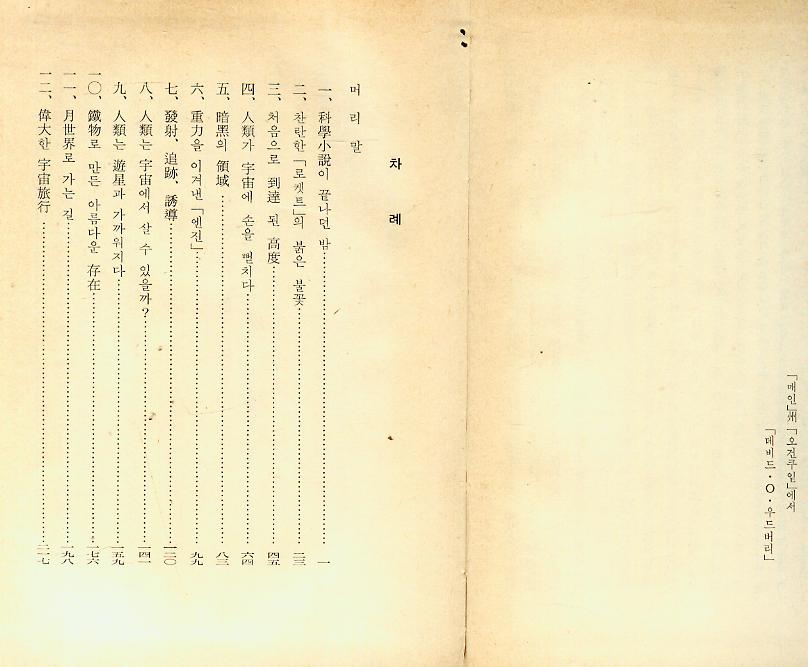 「메인」州「오건쿠일」에서
「데비드·O·우드버리」
차 례
머 리 말
一、科學小說이 끝나던 밤 一
二、찬란한「로켓트」의 붉은 불꽃 二三
三、처음으로 到達 된 高度 四五
四、人類가 宇宙에 손을 뻗치다 六四
五、暗黑의 領域 八三
六、重力을 이겨낸「엔진」 九九
七、發射、追跡、誘導 一二〇
八、人類는 宇宙에서 살 수 있을까? 一四一
九、人類는 遊星과 가까워지다 一五九
一〇、鐵物로 만든 아름다운 存在 一七六
一一、月世界로 가는 길 一九八
一二、偉大한 宇宙旅行 二一七